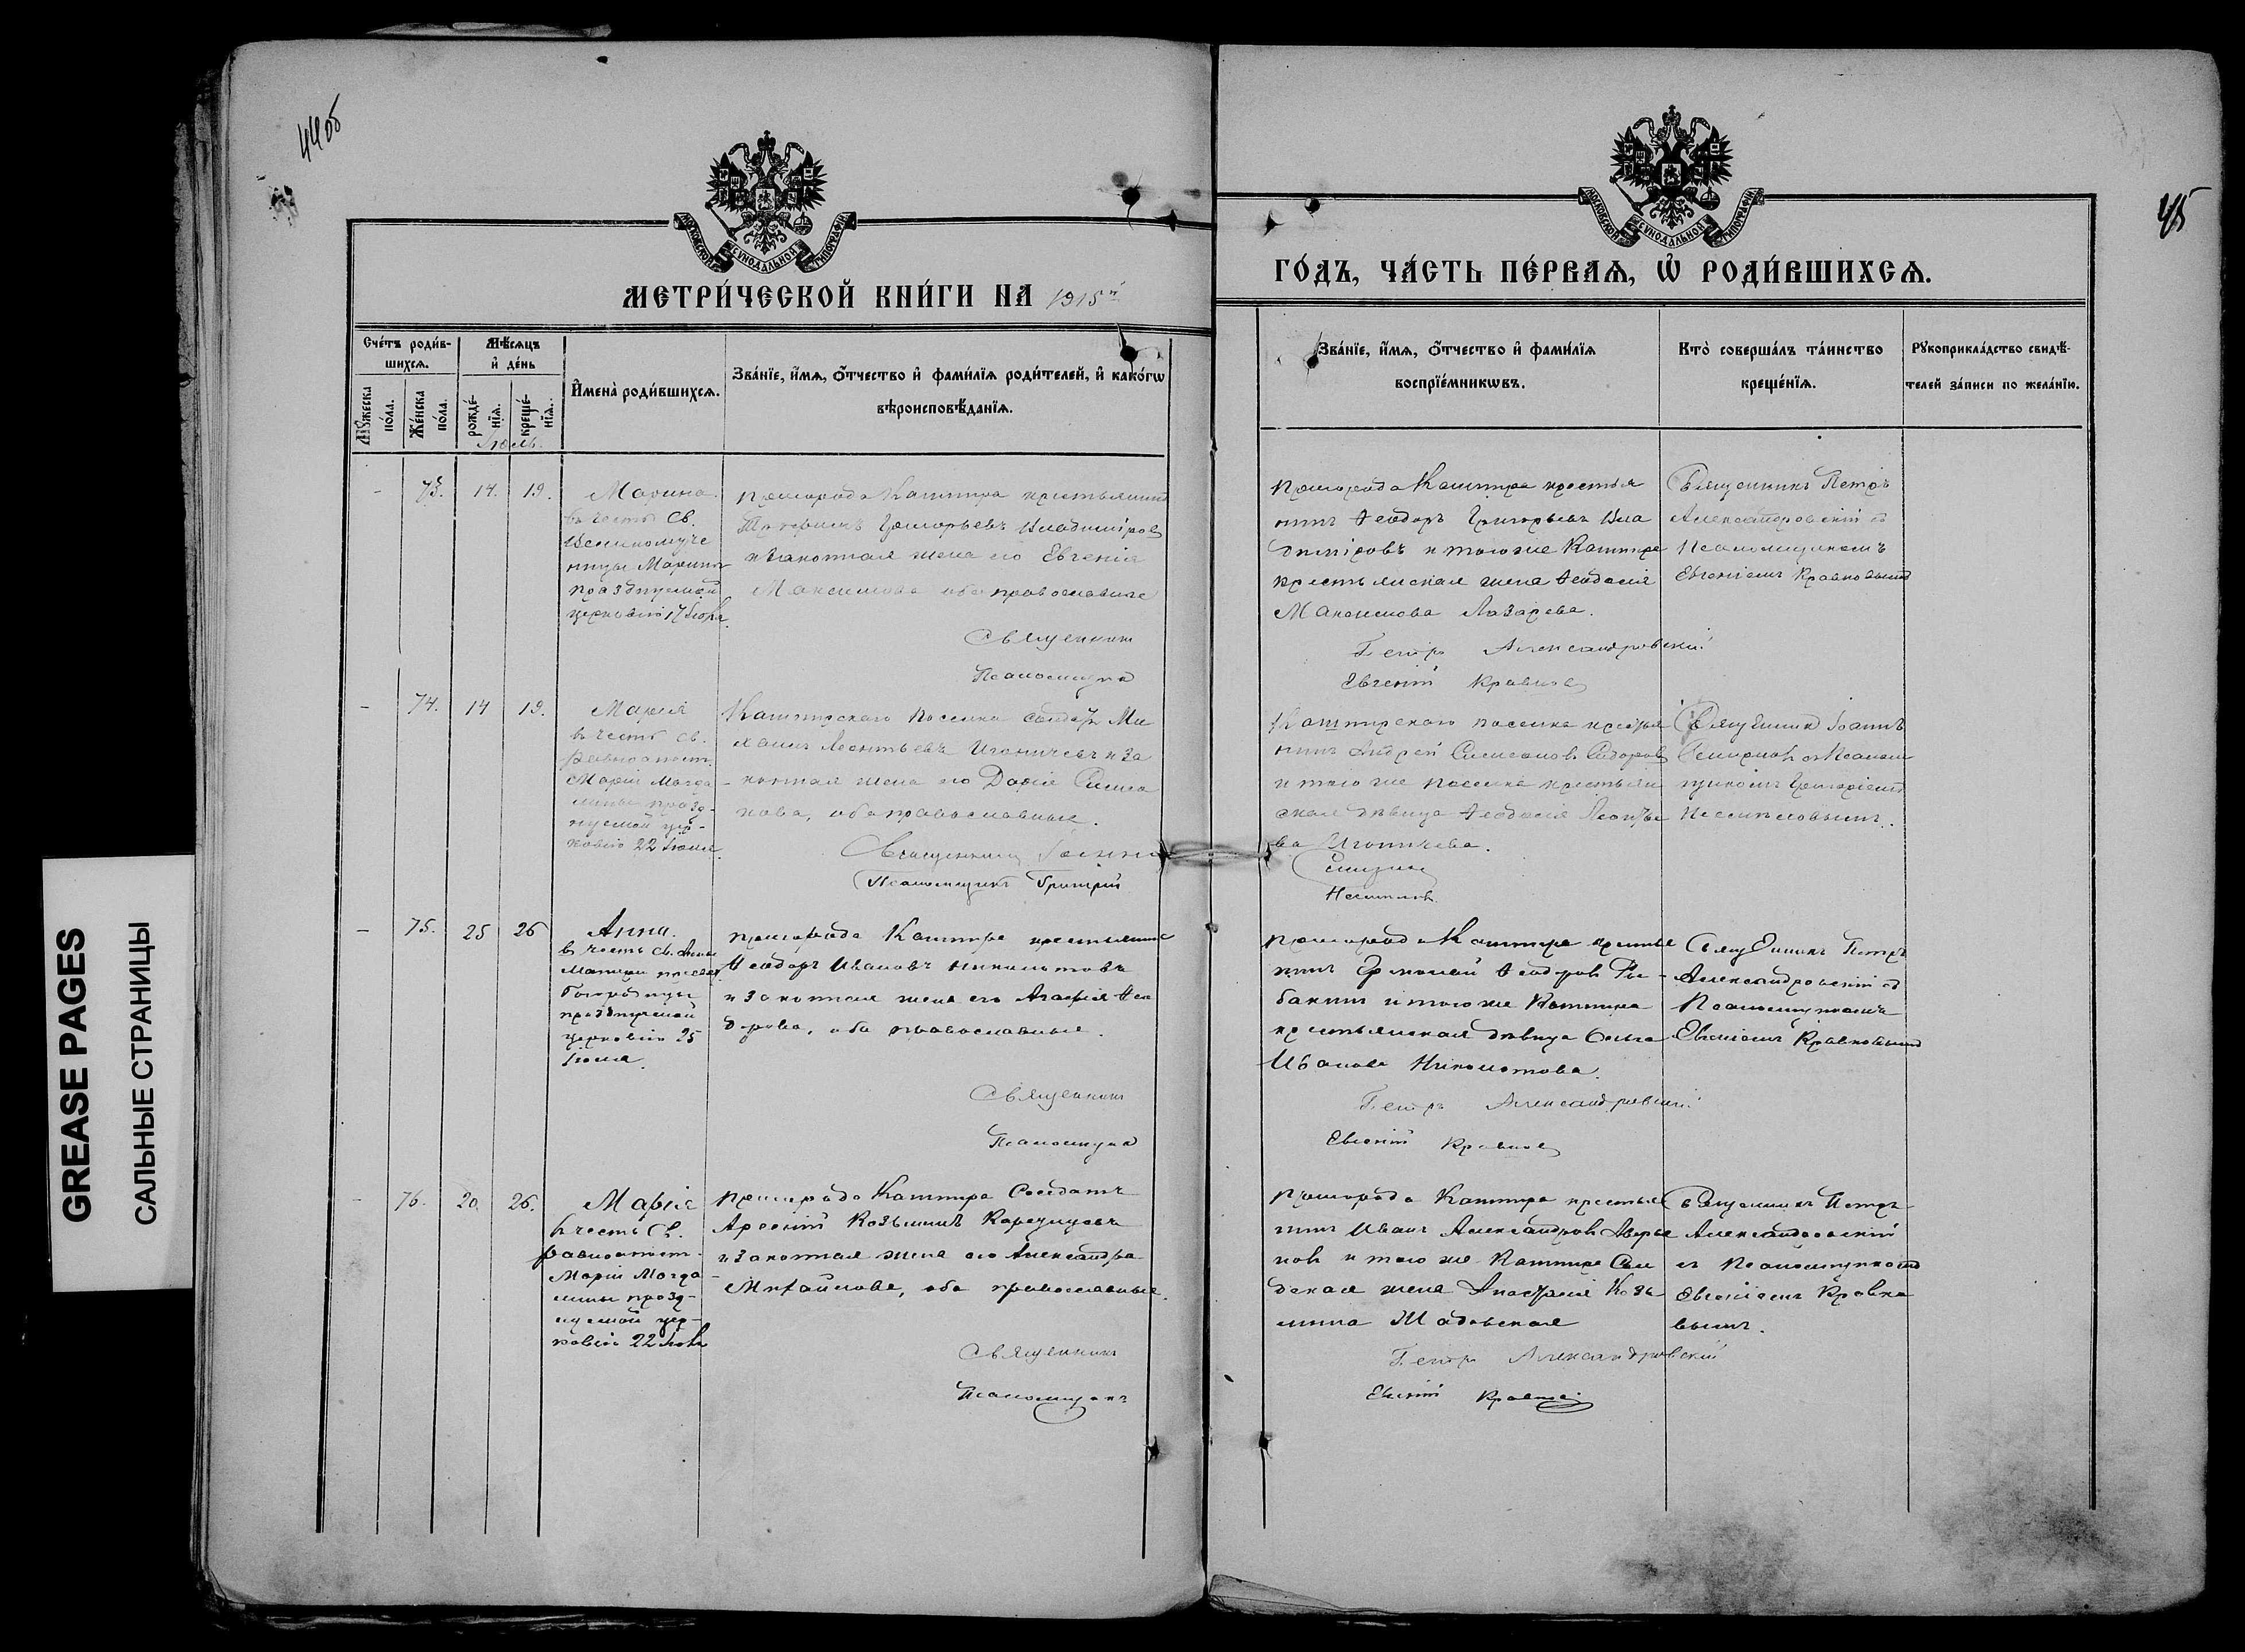 44об
45
МОСКОВСКОЙ СУНОДАЛЬНОЙ ТИПОГРАФІИ
МОСКОВСКОЙ СУНОДАЛЬНОЙ ТИПОГРАФІИ
МЕТРИ́ЧЕСКОЙ КНИ́ГИ НА 1915й
ГО́ДЪ, ЧА́СТЬ ПЕ́РВАЯ, Ѡ҆ РОДИ́ВШИХСЯ.
Сче́тъ роди́в-
шихся.
Мꙋ́жеска
по́ла.
Же́нска
по́ла.
Мѣ́сяцъ
и҆ де́нь
рожде́-
нїя.
креще́-
нїя.
Іюль.
И҆мена̀ роди́вшихся.
Зва́нїе, и҆́мя, ѻ҆́тчество и҆ фами́лїя роди́телей, и҆ како́гѡ
вѣроисповѣ́данїя.
Зва́нїе, и҆́мя, ѻ҆́тчество и҆ фами́лїя
воспрїе́мникѡвъ.
Кто̀ соверша́лъ та́инство
креще́нїя.
Рꙋкоприкла́дство свидѣ́-
телей за́писи по жела́нїю.
- 73. 14. 19. Марина
въ честь св.
Великомуче
ницы Марины
празднуемой
церковію 17 Іюля
пригорода Каштира крестьянинъ
Григорьевъ Владиміровъ
и законная жена его Евгенія
Максимова оба православные
Священникъ
Псаломщикъ
пригорода Каштира крестья
нинъ Ѳеодоръ Григорьевъ Вла
диміровъ и того же Каштира
крестьянская жена Ѳеодосія
Максимова Лазарева.
Петръ Александровскій
Евгеній Кравковъ
Священникъ Петръ
Александровскій съ
Псаломщикомъ
Евгеніемъ Кравковымъ
- 74. 14 19. Марія
въ честь св.
равноапост.
Маріи Магда
лины празд-
нуемой цер-
ковію 22 Іюля
Каштирскаго поселка солдатъ Ми
хаилъ Леонтьевъ Игоничевъ и за
конная жена его Дарія Симео
нова, оба православные.
Священникъ Іоаннъ
Псаломщикъ Григорій
Каштирскаго поселка крестья
нинъ Андрей Симеоновъ Сидоровъ
и того же поселка крестьян
ская дѣвица Ѳеодосія Леонтье
ва Игоничева.
Священникъ Іоаннъ
- 75. 25 26 Анна.
въ честь св. Анны
Матери пресвят.
Богородицы
празднуемой
церковію 25
Іюля.
пригорода Каштира крестьянинъ
Ѳеодоръ Ивановъ Никонотовъ
и законная жена его Агафія Ѳео
дорова, оба православные.
Священникъ
Псаломщикъ
пригорода Каштира крестья
нинъ Ермолай Ѳеодоровъ Ры-
бакинъ и того же Каштира
крестьянская дѣвица Ольга
Иванова Никонотова.
Петръ Александровскій
Евгеній Кравковъ
Священникъ Петръ
Александровскій съ
Псаломщикомъ
Евгеніемъ Кравковымъ
- 76. 20 26. Марія
въ честь Св.
равноапост.
Маріи Магда-
лины празд-
нуемой цер-
ковію 22 Іюля
пригорода Каштира Солдатъ
Арсеній Козьминъ
и законная жена его Александра
Михайлова, оба православные.
Священникъ
Псаломщикъ
пригорода Каштира крестья
нинъ Иванъ Александровъ Аверья
новъ и того же Каштира Сол
датская жена Анастасія Козь
мина Шадовская
Петръ Александровскій
Евгеній Кравковъ
Священникъ Петръ
Александровскій
съ Псаломщикомъ
Евгеніемъ Кравко
вымъ.
GREASE PAGES
САЛЬНЫЕ СТРАНИЦЫ